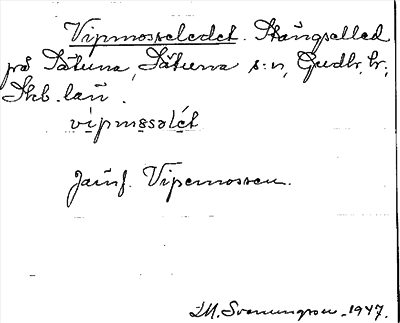 Vipmosseledet. Stängselled
på Sätuna, Sätuna s:n, Gudh. hr,
Skb. län.
vipmosəlét
Jämf. Vipemossen.
D.M. Svenningson. 1947.